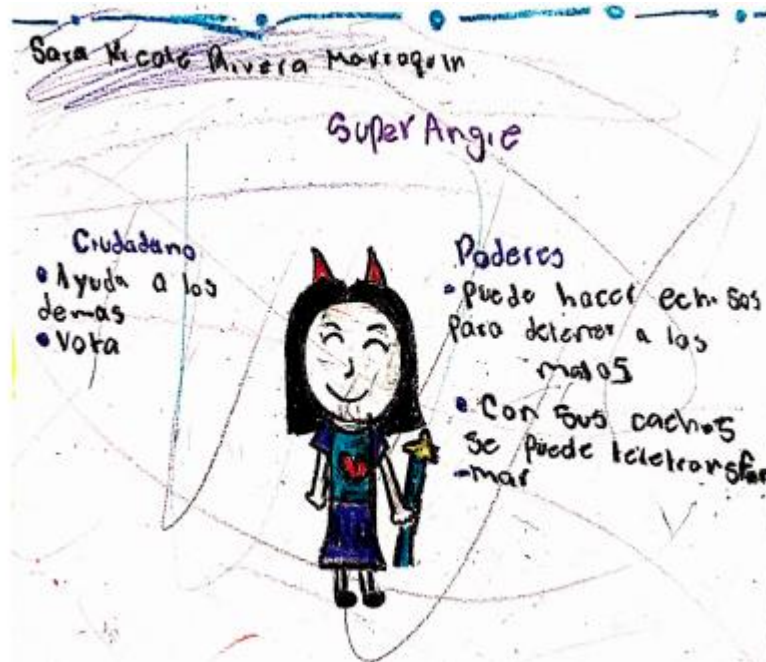 Sara Nicole Rivera Marroquin
Super Angie
Ciudadano
• Ayuda a los
demas
• Vota
Poderes
• puede hacer echisos
para detener a los
malos
• Con sus cachos
se puede teletransfor
-mar